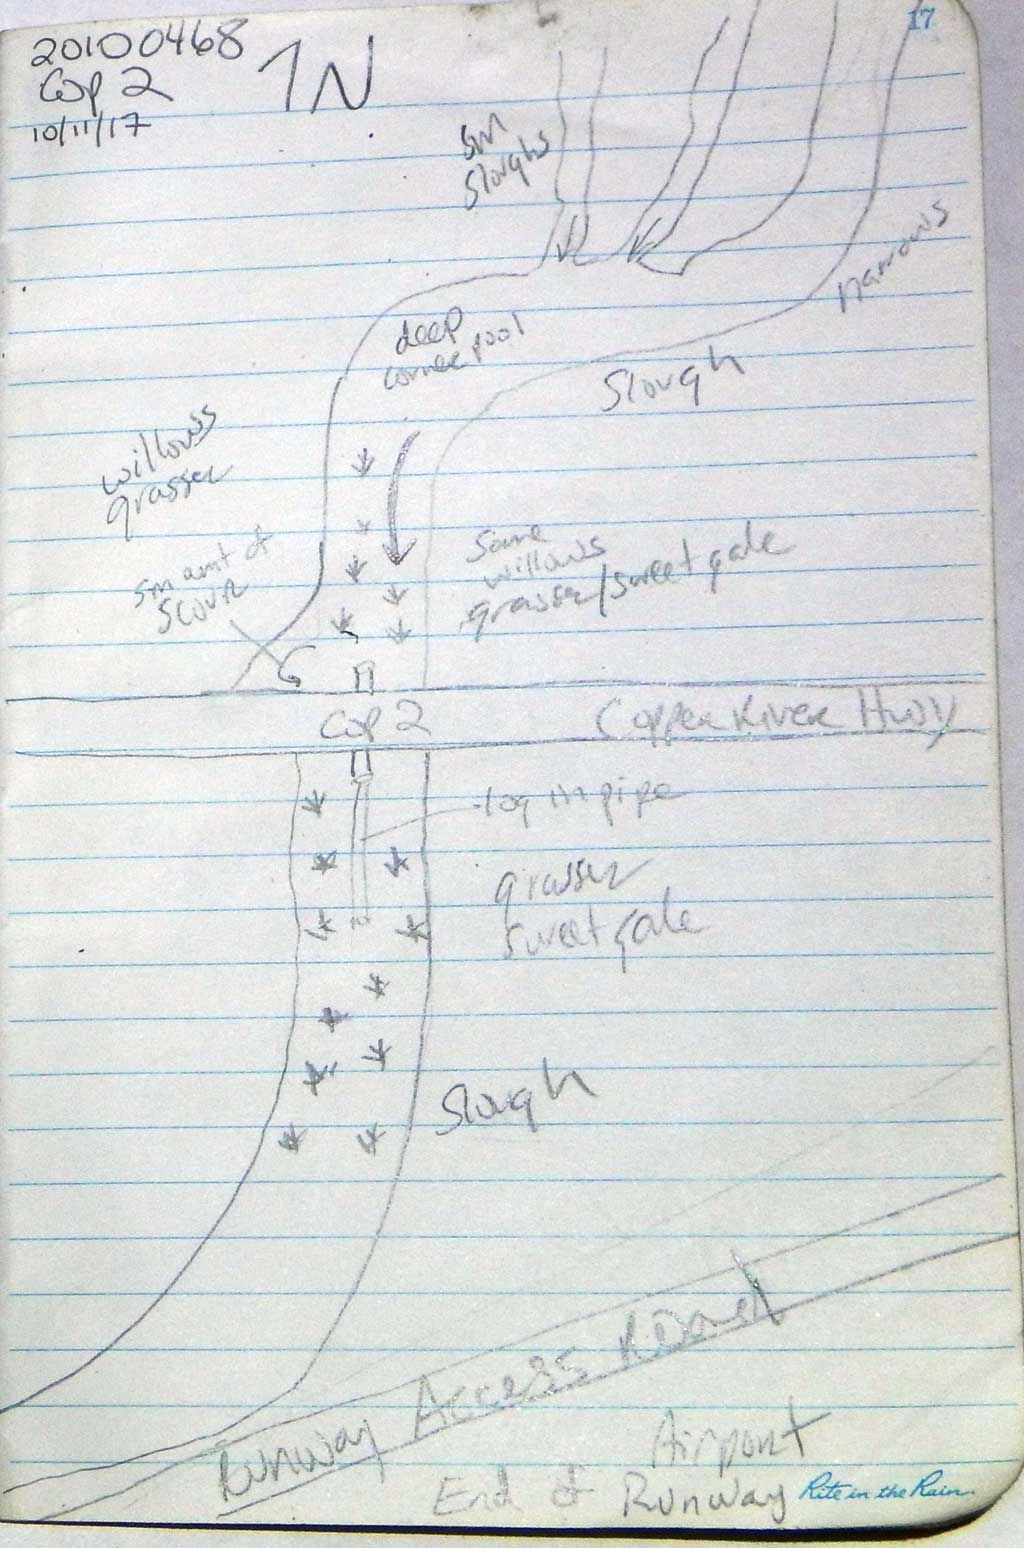 17
20100468
Cop 2
10/11/17
↑N
sm
sloughs
narrows
deep
corner pool
Slough
willows
grasses
sm amt of
scour
Some
willows
grasses/sweet gale
Cop 2
Copper River Hwy
log in pipe
grasses
sweet gale
Slough
Runway Access Road
Airport
End of Runway
Rite in the Rain